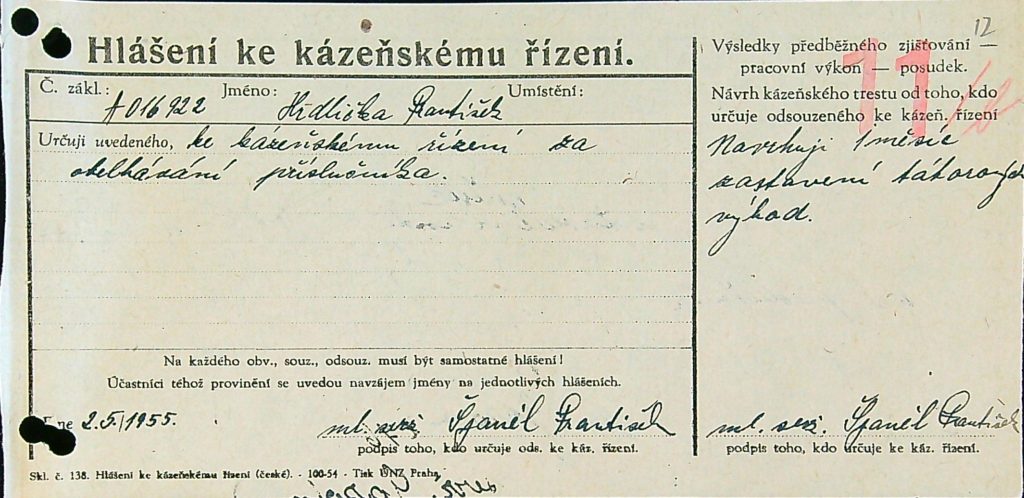 12
Hlášení ke kázeňskému řízení.
Č. zákl.: Jméno: Umístění:
A016922 Hrdlička František
Určuji uvedeného, ke kázeňskému řízení za
obelhávání příslučníka.
Na každého obv., souz., odsouz. musí být samostatné hlášení!
Účastníci téhož provinění se uvedou navzájem jmény na jednotlivých hlášeních.
ne 2.5./1955.
ml. serž. Španěl František
podpis toho, kdo určuje ods. ke káz. řízení.
Skl. č. 138. Hlášení ke kázeňskému řízení (české). - 100-54 - Tisk ÚNZ Praha.
Výsledky předběžného zjišťování —
pracovní výkon — posudek.
11
Návrh kázeňského trestu od toho, kdo
určuje odsouzeného ke kázeň. řízení
Navrhuji 1 měsíc
zastavení táborových
výhod.
ml. serž. Španěl František
podpis toho, kdo určuje ke káz. řízení.